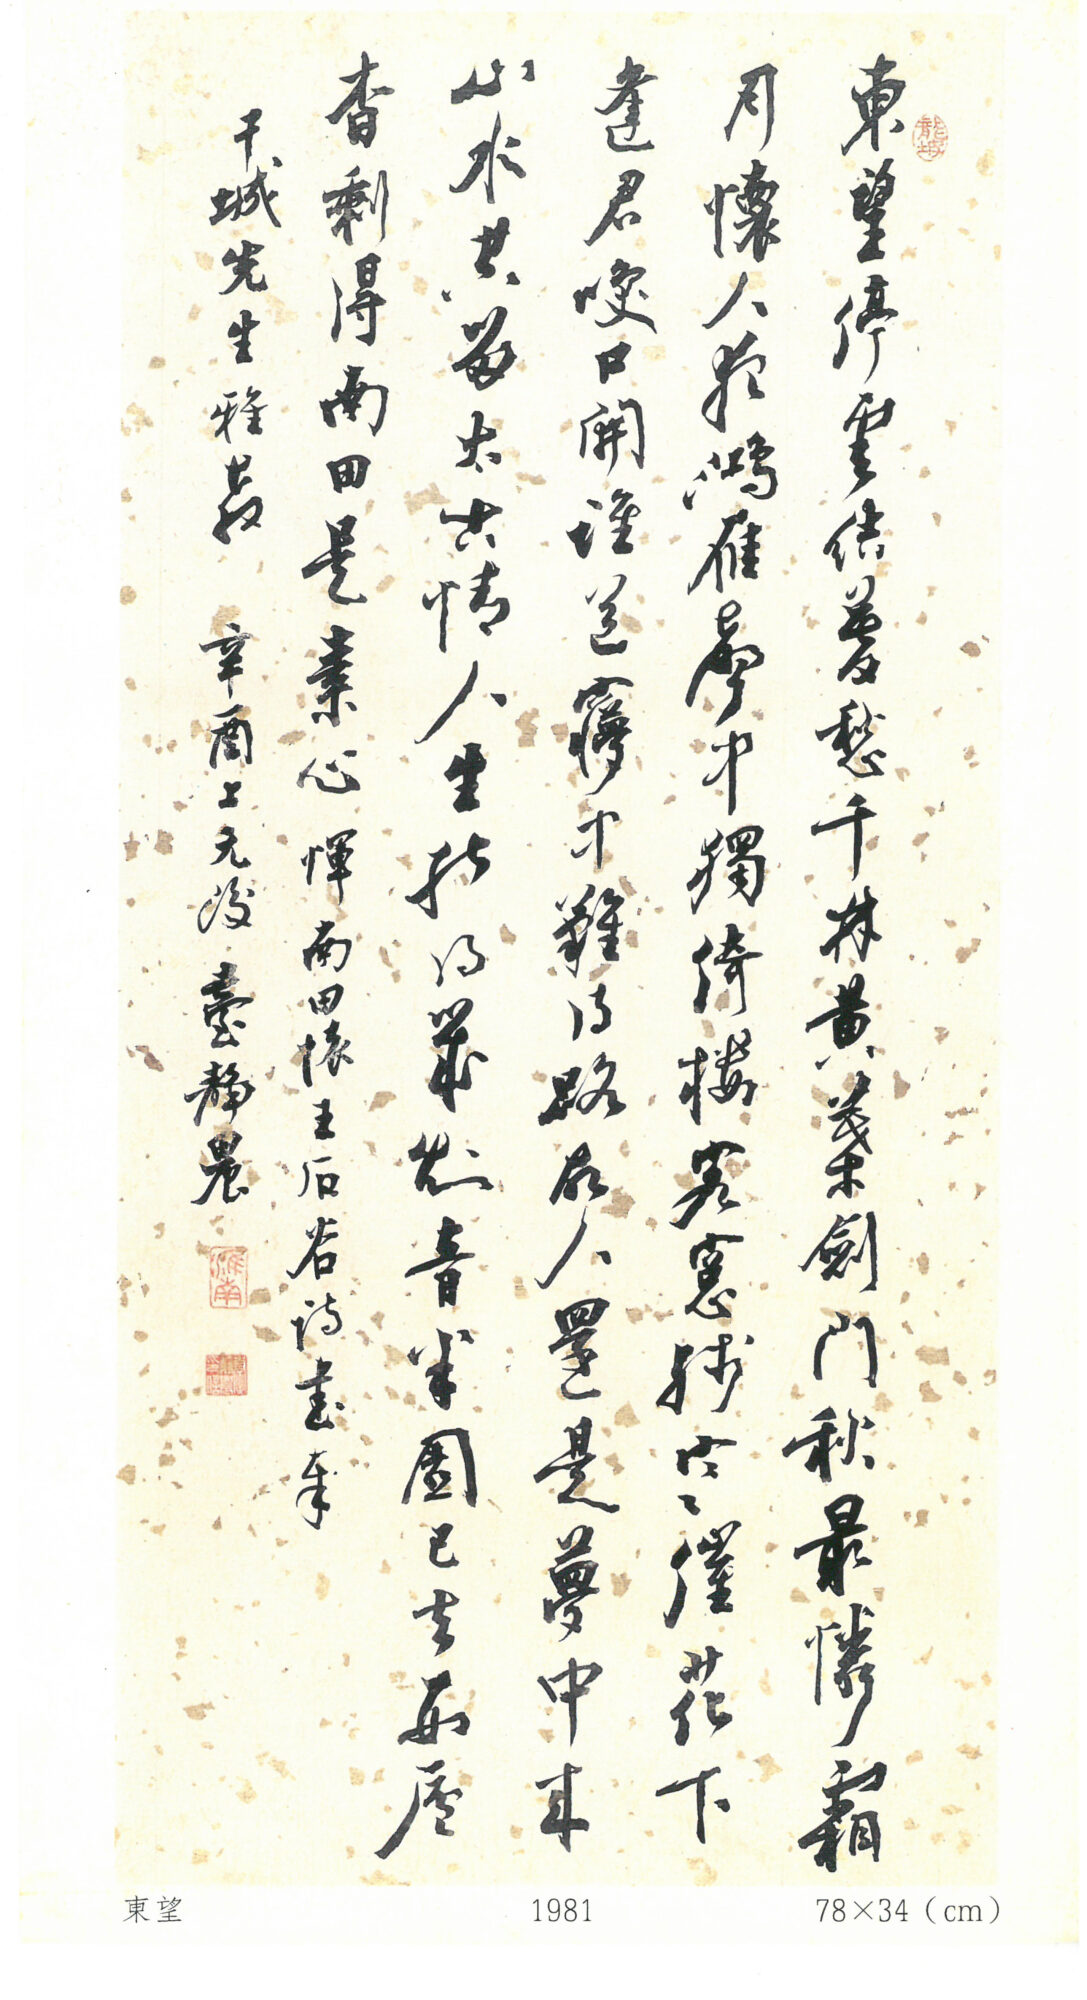 東望停雲結暮愁千林黃葉劍門秋最憐霜
月懷人夜鴻雁聲中獨倚樓客窗催花下
逢君咲口開誰道夢中難得路故人還是夢中來
山水共留太古情人生能得幾知音半園已去西廬
杳剩得南田是素心 惲南田懷王石谷詩書奉
干城先生雅教 辛酉上元後 臺靜農
龍坡
淮南
東望 1981 78×34（cm）